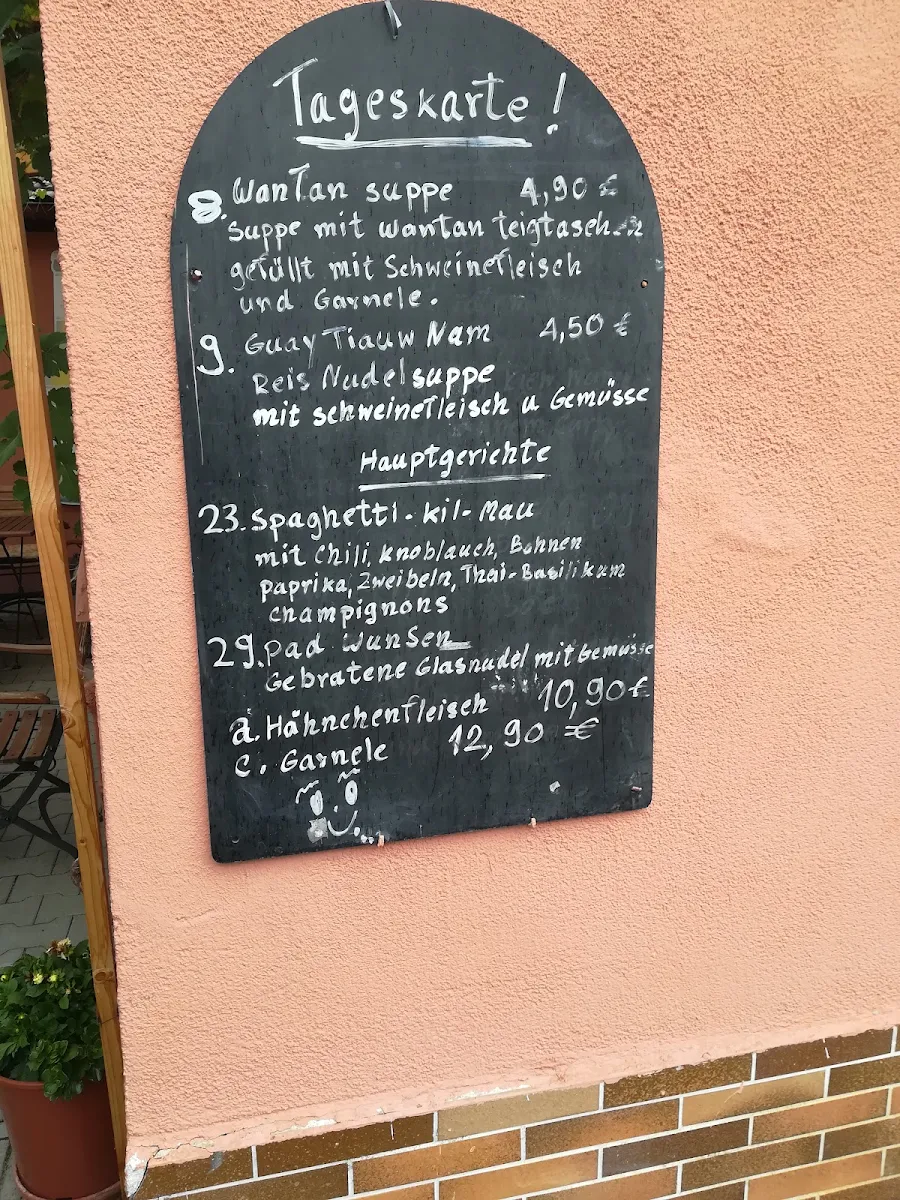 Tageskarte!
8. Wantan suppe 4,90 €
Suppe mit wantan teigtaschen
gefüllt mit Schweinefleisch
und Garnele.
9. Guay Tiauw Nam 4,50 €
Reis Nudelsuppe
mit schweinefleisch u Gemüsse
Hauptgerichte
23. Spaghetti-kil-Mau
mit Chili, knoblauch, Bohnen
paprika, Zweibeln, Thai-Basilikum
champignons
29. pad WunSen
Gebratene Glasnudel mit Gemüsse
a. Hähnchenfleisch 10,90 €
c. Garnele 12,90 €